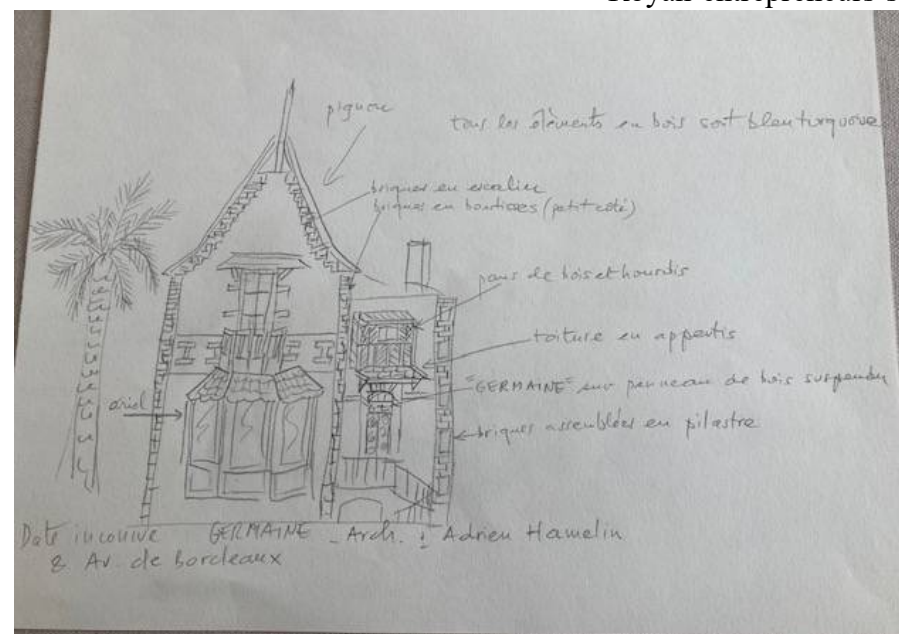 Royan entrepreneurs
pignon
tous les éléments en bois sont bleu turquoise
briques en escalier
briques en boutisses (petit côté)
pans de bois et hourdis
toiture en appentis
"GERMAINE" sur panneau de bois suspendu
oriel
briques assemblées en pilastre
Date inconnue GERMAINE - Arch. : Adrien Hamelin
8 Av. de Bordeaux